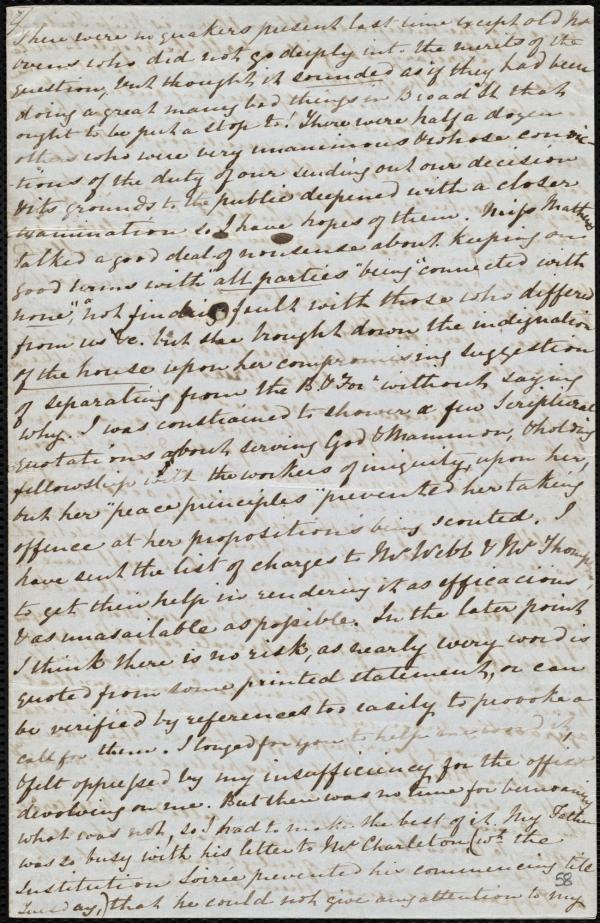 7/
There were no quakers present last time except old Mr
who did not go deeply into the merits of the
question, but thought it sounded as if they had been
doing a great many bad things in Broad St that
ought to be put a stop to! There were half a dozen
others who were very unanimous & whose convic-
-tions of the duty of our sending out our decision
& its grounds to the public deepened with a closer
examination so I have hopes of them. Miss Mathews
talked a good deal of nonsense about keeping on
good terms with all parties "being "connected with
none", "not finding fault with those who differed
from us" &c. but she brought down the indignation
of the house upon her compromising suggestion
of separating from the B. & For" without saying
why. I was constrained to shower a few Scriptural
quotations about serving God & Mammon, & holding
fellowship with the workers of iniquity, upon her,
but her "peace principles" prevented her taking
offence at her propositions being scouted. I
have sent the list of charges to Mr Webb & Mr Thompson
to get their help in rendering it as efficacious
& as unasailable as possible. In the later point
I think there is no risk, as nearly every word is
quoted from some printed statement, or can
be verified by references too easily to provoke a
call for them. I longed for you to help
& felt oppressed by my insufficiency for the office
devolving on me. But there was no time for bemoaning
what was not, so I had to make the best of it. My Father
was so busy with his letter to Mr Charleton (wh the
Institution Soiree prevented his commencing till
Tuesday,) that he could not give any attention to my
58